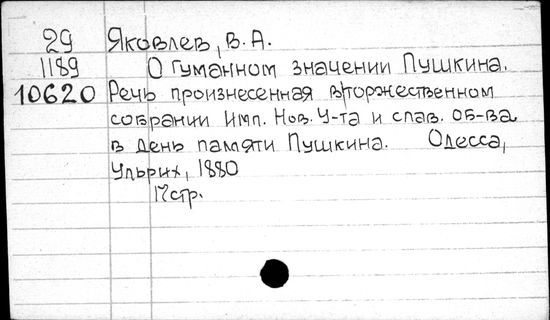 29 Яковлев, В. А.
1189 О гуманном значении Пушкина.
10620 Речь произнесенная в торжественном
собрании Имп. Нов. У-та и слав. об-ва
в день памяти Пушкина. Одесса,
Ульрих, 1880
17 стр.